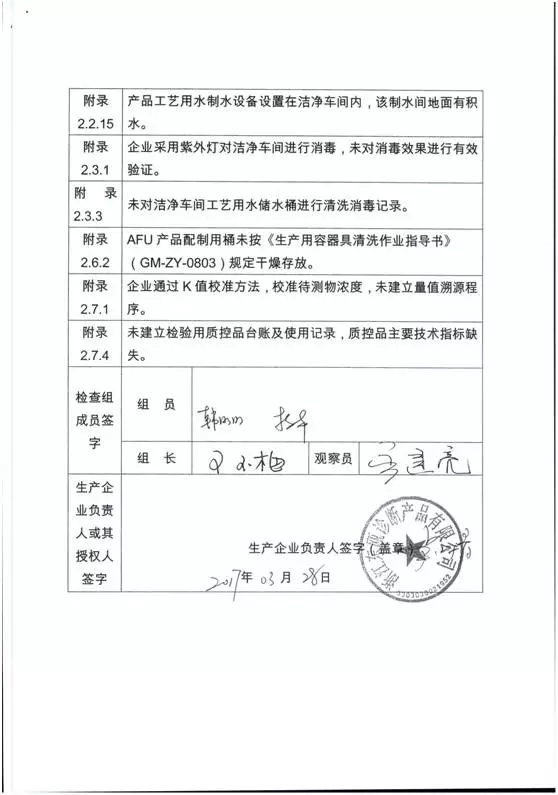 附录
2.2.15
产品工艺用水制水设备设置在洁净车间内，该制水间地面有积
水。
附录
2.3.1
企业采用紫外灯对洁净车间进行消毒，未对消毒效果进行有效
验证。
附 录
2.3.3
未对洁净车间工艺用水储水桶进行清洗消毒记录。
附录
2.6.2
AFU 产品配制用桶未按《生产用容器具清洗作业指导书》
（GM-ZY-0803）规定干燥存放。
附录
2.7.1
企业通过 K 值校准方法，校准待测物浓度，未建立量值溯源程
序。
附录
2.7.4
未建立检验用质控品台账及使用记录，质控品主要技术指标缺
失。
检查组
成员签
字
组 员
组 长
观察员
生产企
业负责
人或其
授权人
签字
生产企业负责人签字（盖章）
2017年 03月 28日
诊断产品有限公司